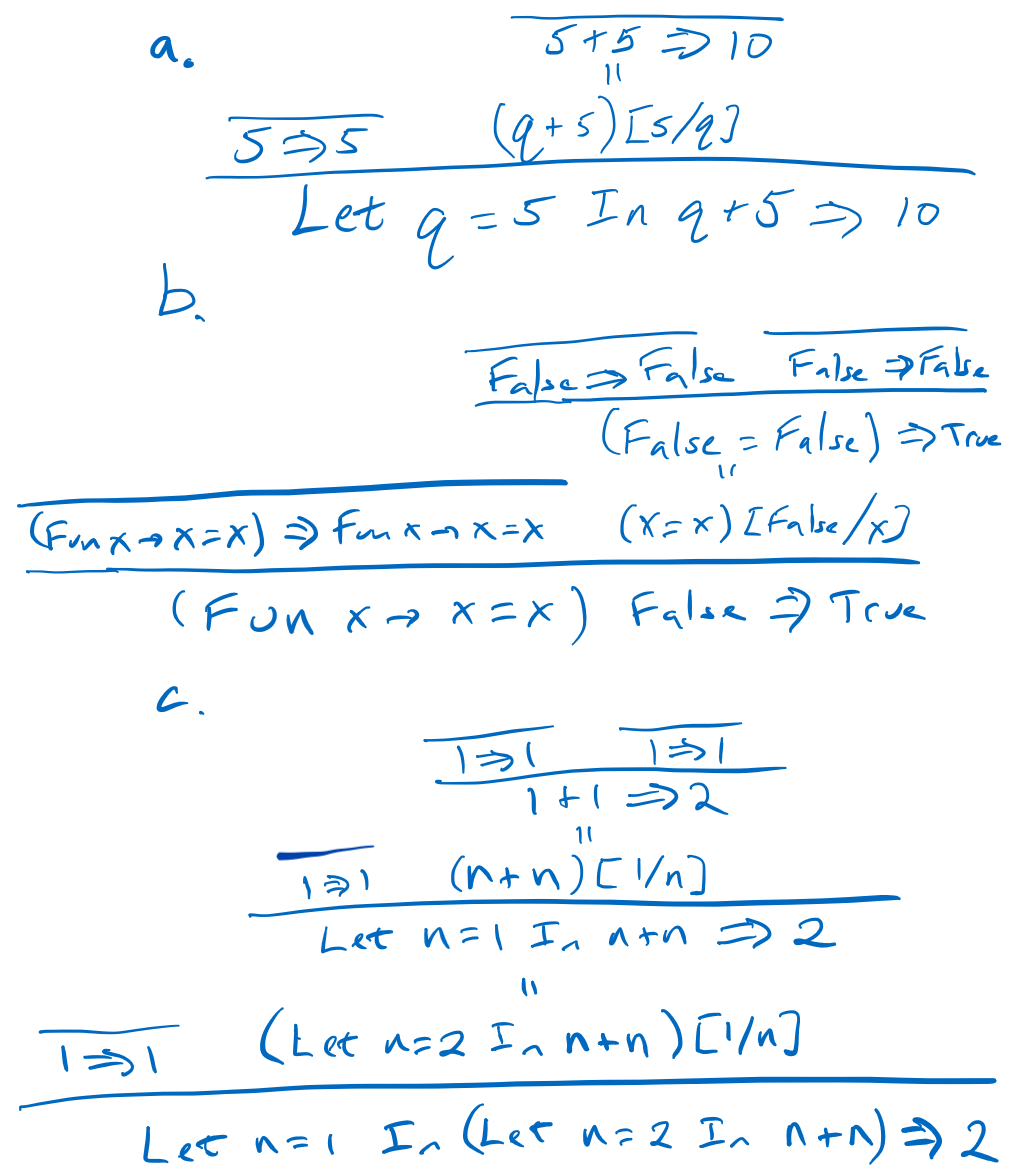 a.
5 + 5 ⇒ 10
=
(q + 5)[5/q]
5 ⇒ 5
Let q = 5 In q + 5 ⇒ 10
b.
False ⇒ False False ⇒ False
(False = False) ⇒ True
=
(Fun x → x = x) ⇒ Fun x → x = x (x = x)[False/x]
(Fun x → x = x) False ⇒ True
c.
1 ⇒ 1 1 ⇒ 1
1 + 1 ⇒ 2
=
1 ⇒ 1 (n + n)[1/n]
Let n = 1 In n + n ⇒ 2
=
1 ⇒ 1 (Let n = 2 In n + n)[1/n]
Let n = 1 In (Let n = 2 In n + n) ⇒ 2